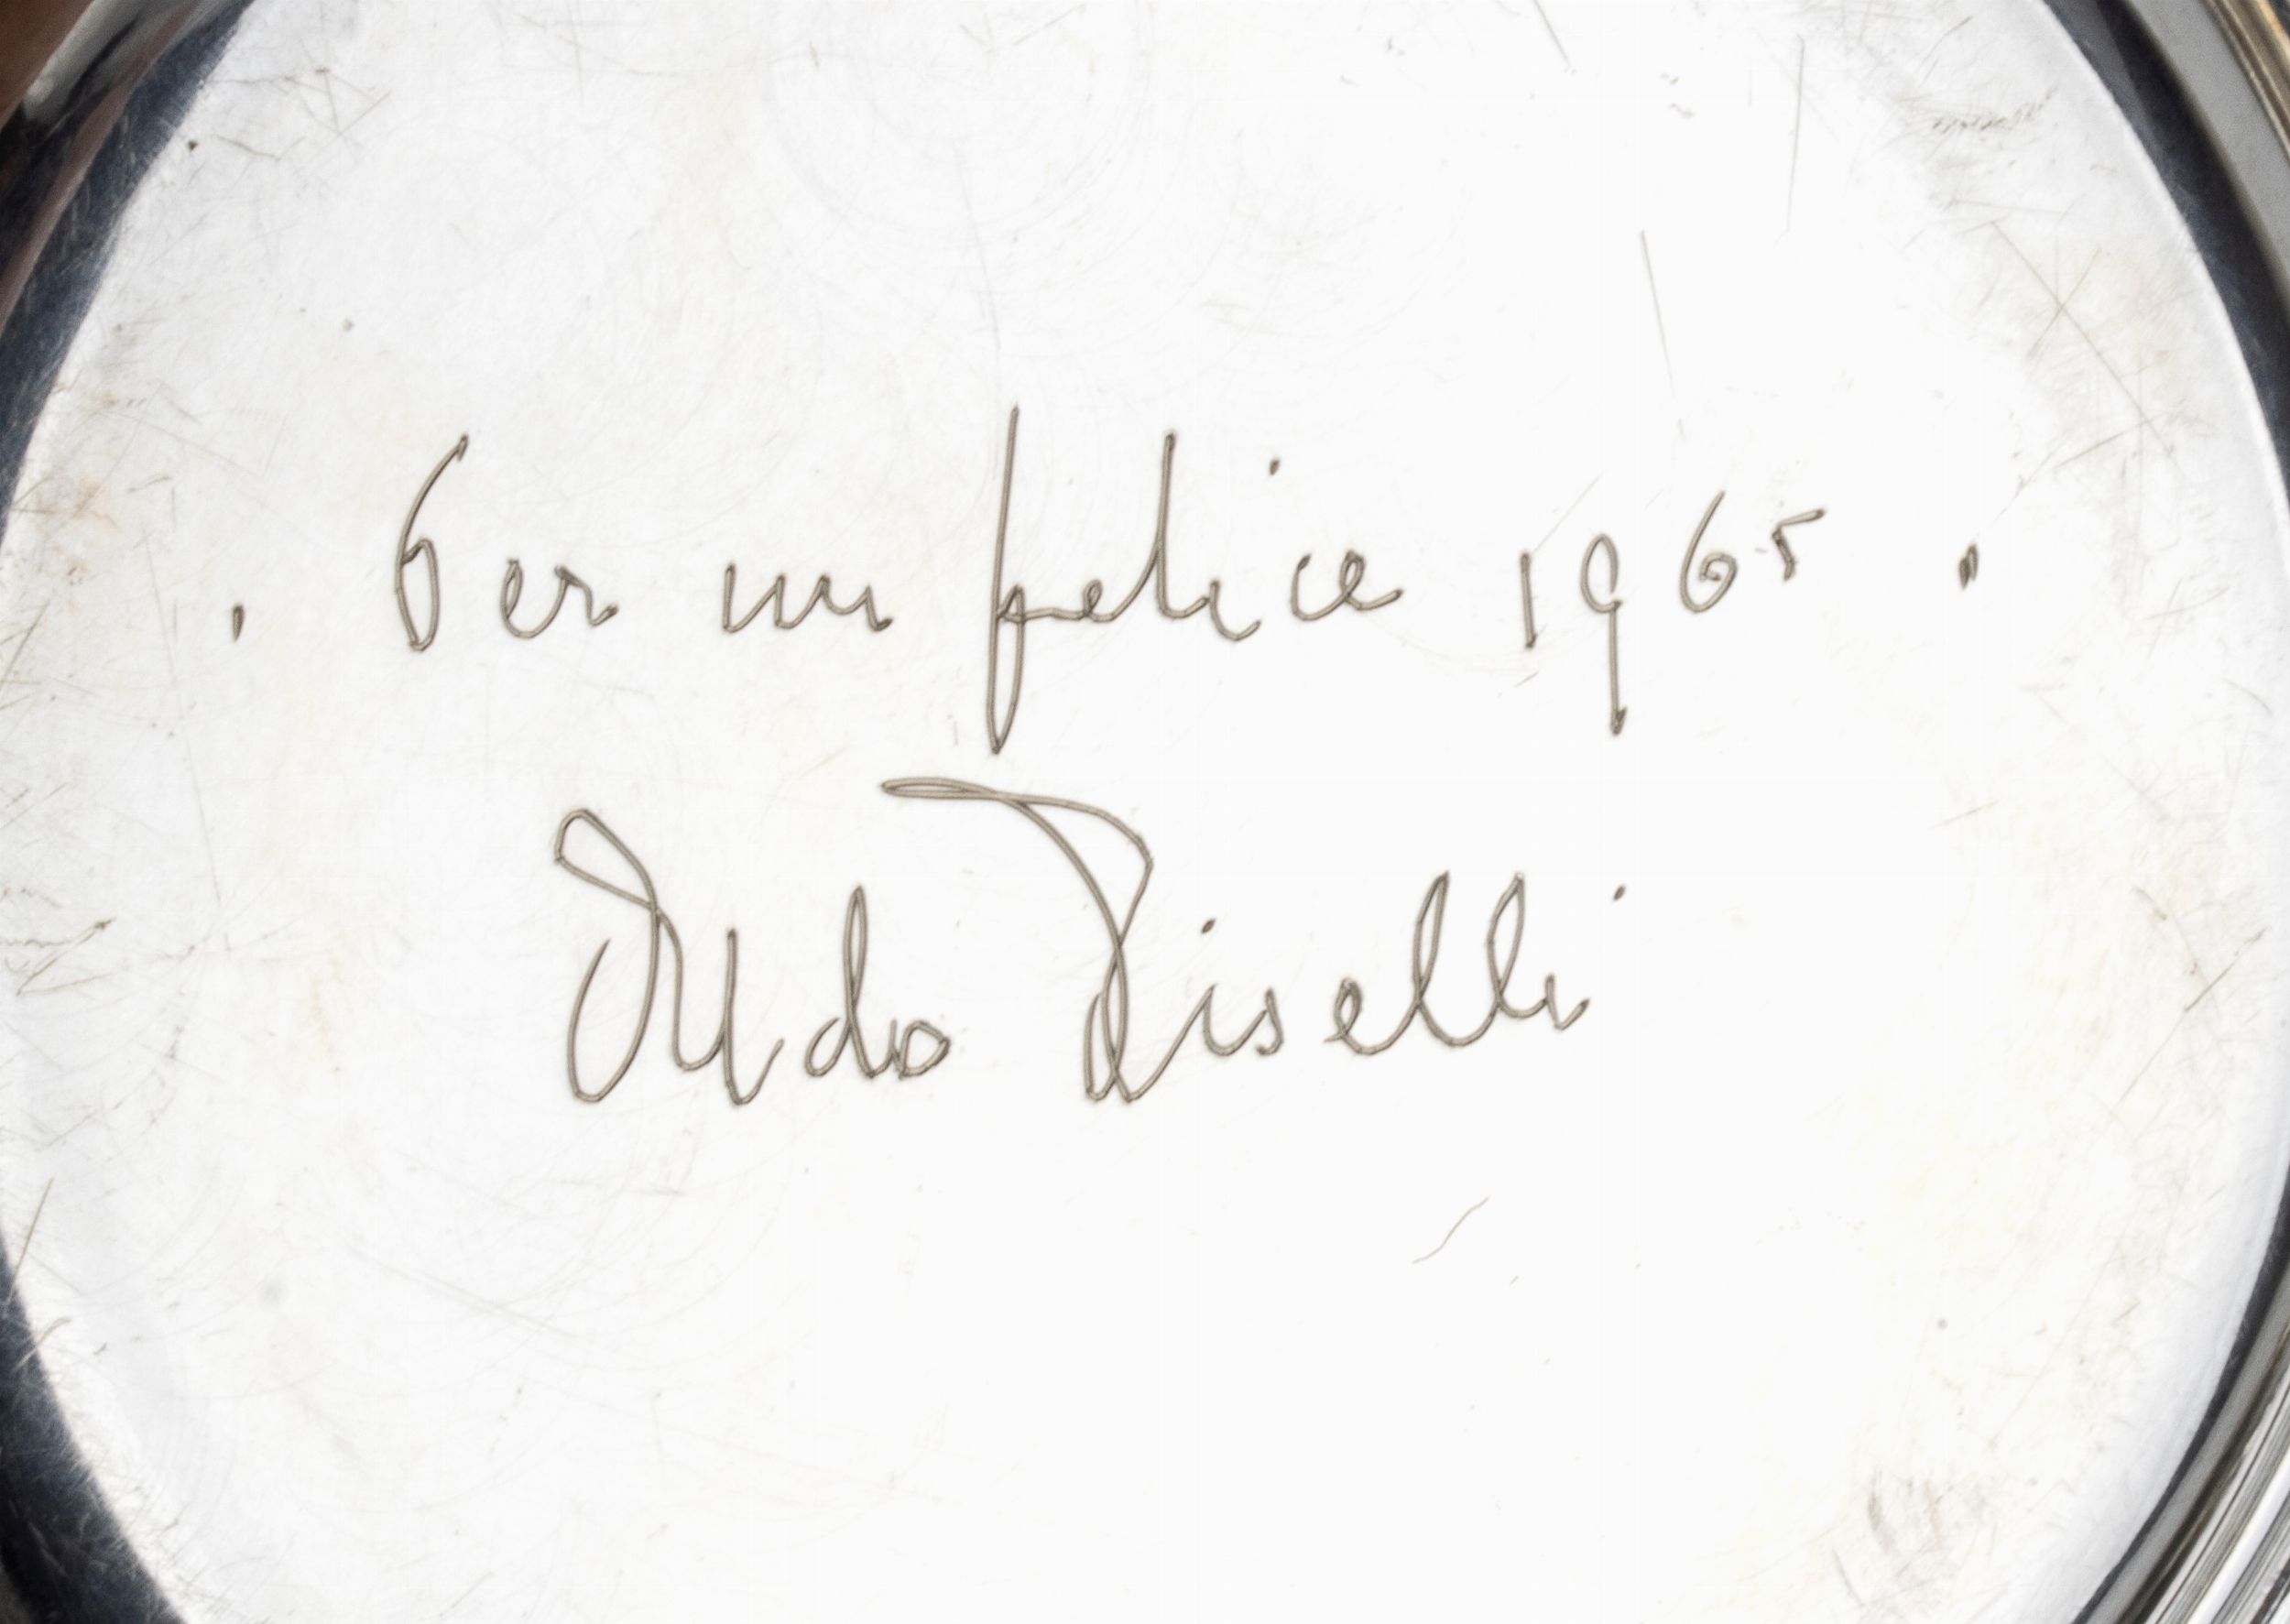 . Per un felice 1965 .
Aldo Riselli